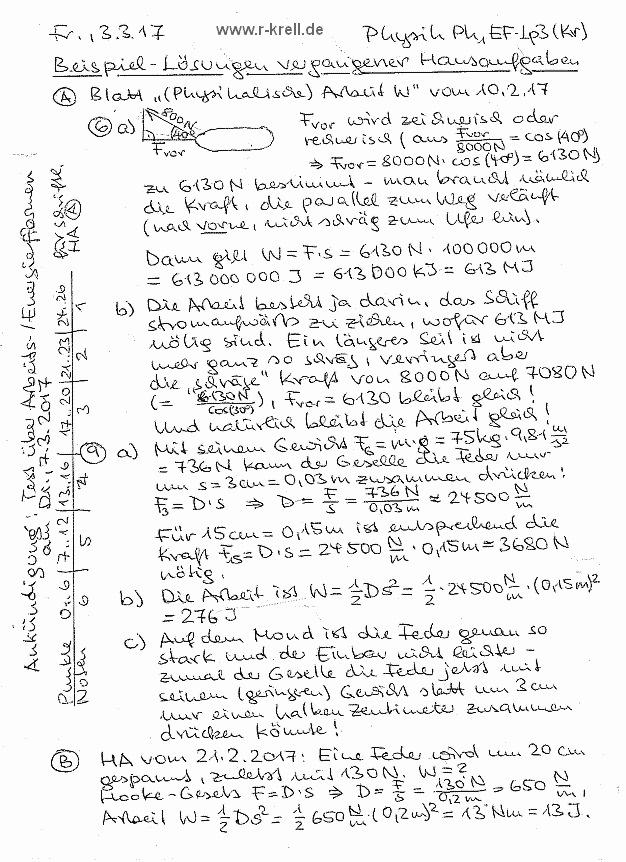 Fr., 3.3.17
www.r-krell.de
Physik Ph1 EF-Lp3 (Kr)
Beispiel-Lösungen vergangener Hausaufgaben
(A) Blatt „(Physikalische) Arbeit W" vom 10.2.17
(6) a)
8000N
40°
Fvor
Fvor wird zeichnerisch oder
rechnerisch (aus Fvor/8000N = cos(40°)
⇒ Fvor = 8000N · cos(40°) = 6130N)
zu 6130N bestimmt – man braucht nämlich
die Kraft, die parallel zum Weg verläuft
(nach vorne, nicht schräg zum Ufer hin).
Dann gilt W = F·s = 6130N · 100000m
= 613 000 000 J = 613 000 kJ = 613 MJ
b) Die Arbeit besteht ja darin, das Schiff
stromaufwärts zu ziehen, wofür 613 MJ
nötig sind. Ein längeres Seil ist nicht
mehr ganz so schräg, verringert aber
die „schräge" Kraft von 8000N auf 7080N
(= 6130N/cos(30°)), Fvor = 6130 bleibt gleich!
Und natürlich bleibt die Arbeit gleich!
(9) a) Mit seinem Gewicht FG = m·g = 75kg · 9,81 m/s²
= 736N kann der Geselle die Feder nur
um s = 3cm = 0,03m zusammen drücken!
F3 = D·s ⇒ D = F/s = 736N/0,03m ≈ 24500 N/m
Für 15cm = 0,15m ist entsprechend die
Kraft F15 = D·s = 24500 N/m · 0,15m = 3680N
nötig.
b) Die Arbeit ist W = ½Ds² = ½ · 24500 N/m · (0,15m)²
= 276 J
c) Auf dem Mond ist die Feder genau so
stark und der Einbau nicht leichter –
zumal der Geselle die Feder jetzt mit
seinem (geringeren) Gewicht statt um 3cm
nur einen halben Zentimeter zusammen
drücken könnte!
(B) HA vom 21.2.2017: Eine Feder wird um 20cm
gespannt, zuletzt mit 130N. W=?
Hooke-Gesetz F = D·s ⇒ D = F/s = 130N/0,2m = 650 N/m,
Arbeit W = ½Ds² = ½ 650 N/m · (0,2m)² = 13 Nm = 13J.
Ankündigung: Test über Arbeits-/Energieformen
am Di., 7.3.2017
Punkte 0..6 | 7..12 | 13..16 | 17..20 | 21..23 | 24..26
Noten 6 | 5 | 4 | 3 | 2 | 1
für schriftl.
HA (A)